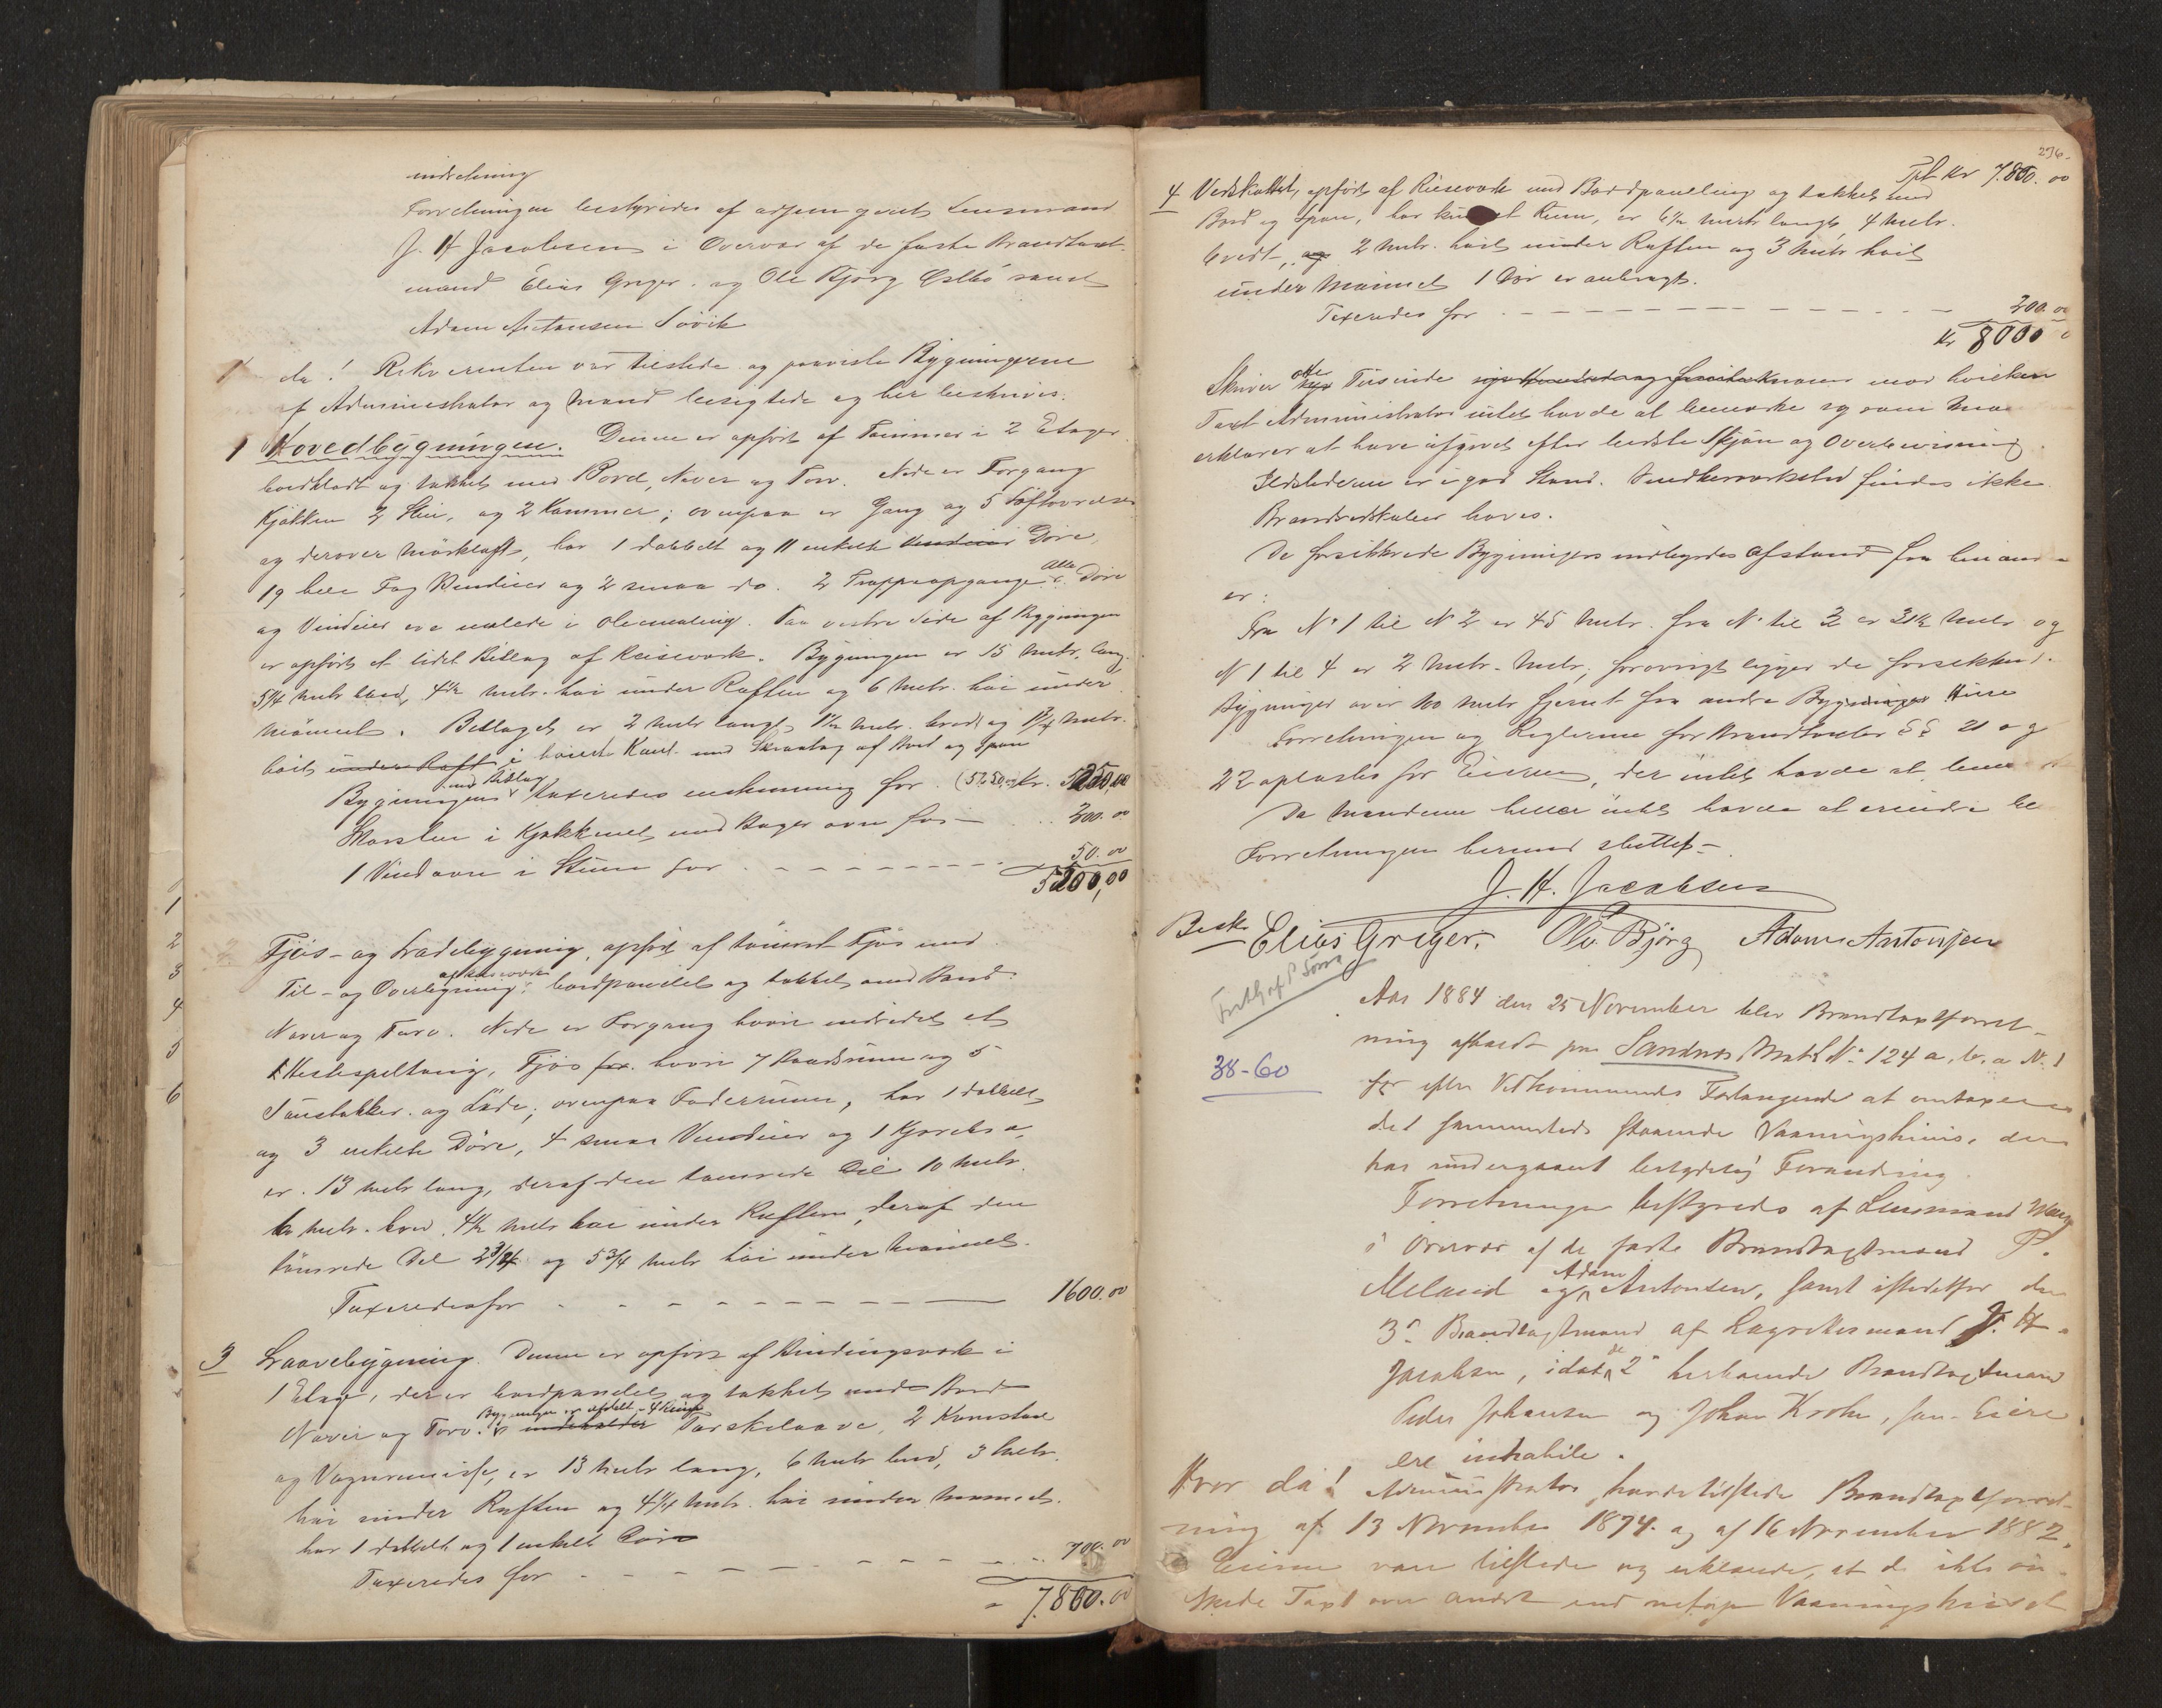 indretning
Forretningen bestyredes af adjungeret Lensmand
J. H Jacobsen i Overvær af de faste Brandtaxt-
mænd Elias Greger. og Ole Bjørg samt
Adam Antonsen
da! Rekvirenten var tilstede og paaviste Bygningerne
af Administrator og Mænd besigtede og her beskrives.
1 Hovedbygningen. Denne er opført af Tømmer i 2 Etager
bordklædt og takket med Bord, Næver og Torv. Nede er Forgang
Kjøkken 2 Stuer, og 2 Kammer; ovenpaa er Gang og 5 Loftsværelser
og derover Mørkloft, har 1 dobbelt og 11 enkelte Vinduer Døre,
19 hele Fag Vinduer og 2 smaa do. 2 Trappeopgange Alle Døre
og Vinduer ere malede i Oliemaling. Paa vestre Side af Bygningen
er opført et lidet Bislag af Reisværk. Bygningen er 15 Metr. lang
5 1/4 Metr bred, 4 1/2 Metr. høi under Raften og 6 Metr. høi under
Mønnet. Bislaget er 2 Metr langt, 1 1/2 Metr. bredt og Metr.
høit under Raft i høieste Kant med Skraatag af Bord og Spon
Bygningen med Bislag taxeredes for (5250,00) Kr. 5250,00
Skorsten i Kjøkkenet med Bagerovn for 200.00
1 Vindovn i Stuen for 50.00
5200,00
Fjøs- og Ladebygning, opført af tømret Fjøs med
Til- og Overbygning af Reisværk bordpanelet og takket med Bord
Næver og Torv. Nede er Forgang hvori indredet et
1 Hestespiltoug, Fjøs for. hvori 7 Baadsrum og 5
og Lade; ovenpaa Foderrum, har 1 dobbelt
og 3 enkelte Døre, 4 smaa Vinduer og 1
er. 13 Metr lang, deraf den tømrede Del 10 Metr.
6 Metr. bred, 4 1/2 Metr høi under Raften, deraf den
tømrede Del 2 3/4 og 5 3/4 Metr høi under Mønnet.
Taxeredes for 1600.00
3 Laavebygning. Denne er opført af Bindingsværk i
1 Etage, der er bordpanelet og takket med Bord
Næver og Torv. Bygningen er afdelt i 4 Rum indeholder Tærskelaave, 2 Kornstal
og Vognremisse, er 13 Metr lang, 6 Metr bred, 3 Metr.
høi under Raften og 4 1/4 Metr. høi under Mønnet.
har 1 dobbelt og 1 enkelt Dør
Taxeredes for 700.00
7.800.00
1
2
3
4
5
6
236.
Tpt Kr 7.800.00
4 Vedskottet, opført af Reisværk med Bordpaneling og takket med
Bord og Spon, har kun et Rum, er 6 1/2 Metr langt, 4 Metr.
bredt, og 2 Metr. høit under Raften og 3 Metr høit
under Mønnet 1 Dør er anbragt.
Taxeredes for 200.00
Kr 8000
Skriver otte syv Tusinde Kroner mod hvilken
Taxt Administrator intet havde at bemærke og som
erklærer at have afgivet efter bedste Skjøn og Overbevisning.
Ildstederne er i god Stand. Snedkerværksted findes ikke
Brandredskaber haves.
De forsikrede Bygningers indbyrdes Afstand fra
er:
Fra No 1 til No 2 er 45 Metr. fra No til 3 er 31 1/2 Metr og
No 1 til 4 er 2 Metr. Metr; forøvrigt ligger de forsikkred.
Bygninger over 100 Metr fjernt fra andre Bygninger Huse
Forretningen og Reglerne for Brandtaxter §§ 21 og
22 oplæstes for Eieren, der intet havde at
Da Mændene heller intet havde at erindre
Forretningen hermed sluttet -
J. H. Jacobsen
Elias Greger. Ole Bjørg Adam Antonsen
38-60
Aar 1884 den 25 November blev Brandtaxtforret-
ning afholdt paa Sandnæs Matr No 124 a, b. a No 1
for efter Vedkommendes Forlangende at omtaxere
det sammesteds staaende Vaaningshuus, der
har undergaaet betydelig Forandring
Forretningen bestyredes af Lensmand
i Overvær af de faste Brandtaxtmænd P.
Meland og Adam Antonsen, samt istedetfor den
3die Brandtaxtmand af Lagrettesmand J. H.
Jacobsen, idet de 2de herboende Brandtaxtmænd
Peder Johansen og Johan Krohn, som Eiere
ere inhabile.
Hvor da! Administrator havde tilstede Brandtaxtforret-
ning af 13 November 1874. og af 16 November 1882,
Eierne vare tilstede og erklærede, at de ikke øn-
skede Taxt over andet end netop Vaaningshuset